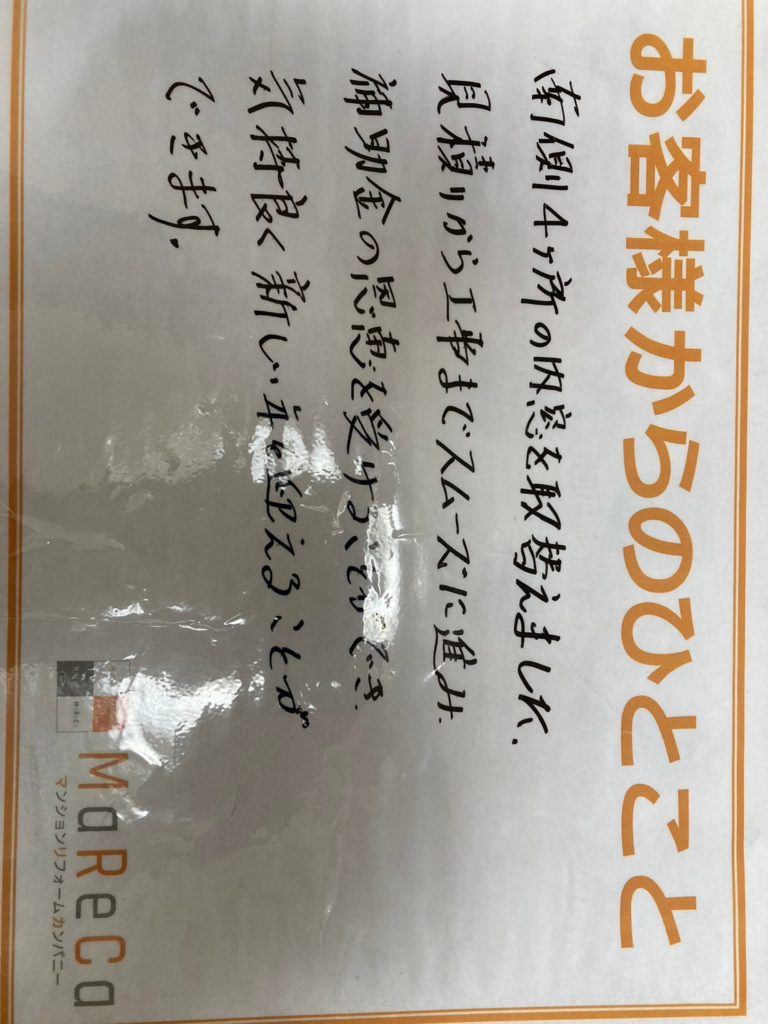 お客様からのひとこと
南側4ヶ所の内窓を取替えました。
見積りから工事までスムーズに進み
補助金の恩恵を受けることができ
気持良く新しい年を迎えることが
できます。
MaReCa
マンションリフォームカンパニー